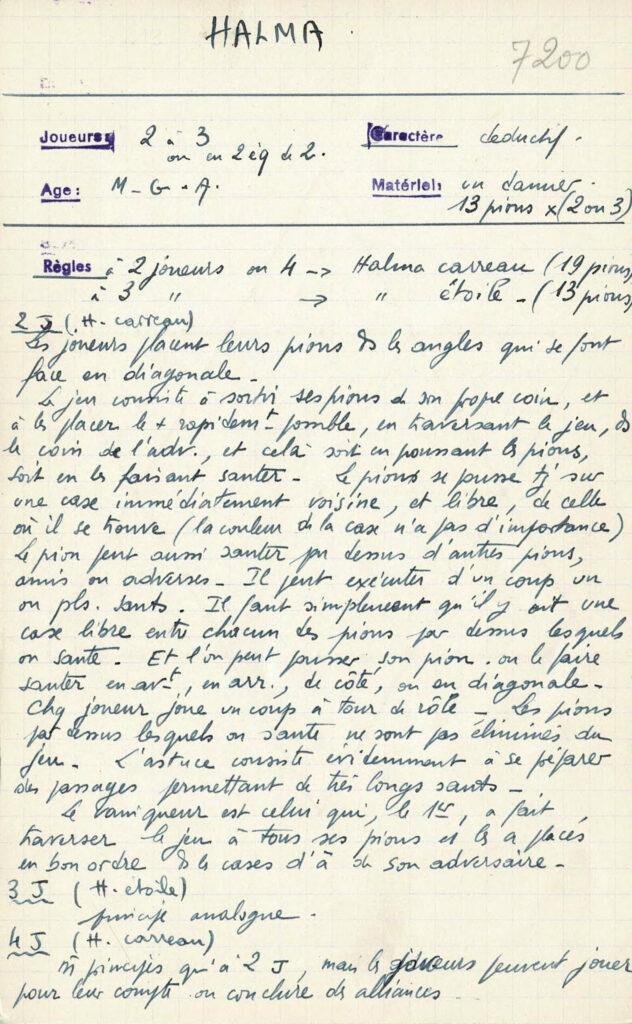 HALMA.
7200
Joueurs: 2 à 3
ou en 2 éq de 2.
Caractère déductif.
Age: M - G - A.
Matériel: un damier.
13 pions x (2 ou 3)
Règles à 2 joueurs ou 4 -> Halma carreau (19 pions,
à 3 " -> " étoile - (13 pions,
2 J (H. carreau)
Les joueurs placent leurs pions ds les angles qui se font
face en diagonale -
Le jeu consiste à sortir ses pions de son propre coin, et
à les placer le + rapidemt possible, en traversant le jeu, ds
le coin de l'adv., et celà soit en poussant les pions,
soit en les faisant sauter - Le pions se pousse tj sur
une case immédiatement voisine, et libre, de celle
où il se trouve (la couleur de la case n'a pas d'importance)
Le pion peut aussi sauter par dessus d'autres pions,
amis ou adverses - Il peut exécuter d'un coup un
ou pls. sauts. Il faut simplement qu'il y ait une
case libre entre chacun des pions par dessus lesquels
on saute. Et l'on peut pousser son pion. ou le faire
sauter en avt, en arr., de côté, ou en diagonale -
Chq joueur joue un coup à tour de rôle - Les pions
par dessus lesquels on saute ne sont pas éliminés du
jeu - L'astuce consiste évidemment à se préparer
des passages permettant de très longs sauts -
Le vainqueur est celui qui, le 1er, a fait
traverser le jeu à tous ses pions et les a placés
en bon ordre ds les cases d'à de son adversaire -
3 J (H. étoile)
principe analogue.
4 J (H. carreau)
m̂ principes qu'à 2 J, mais les joueurs peuvent jouer
pour leur compte ou conclure des alliances